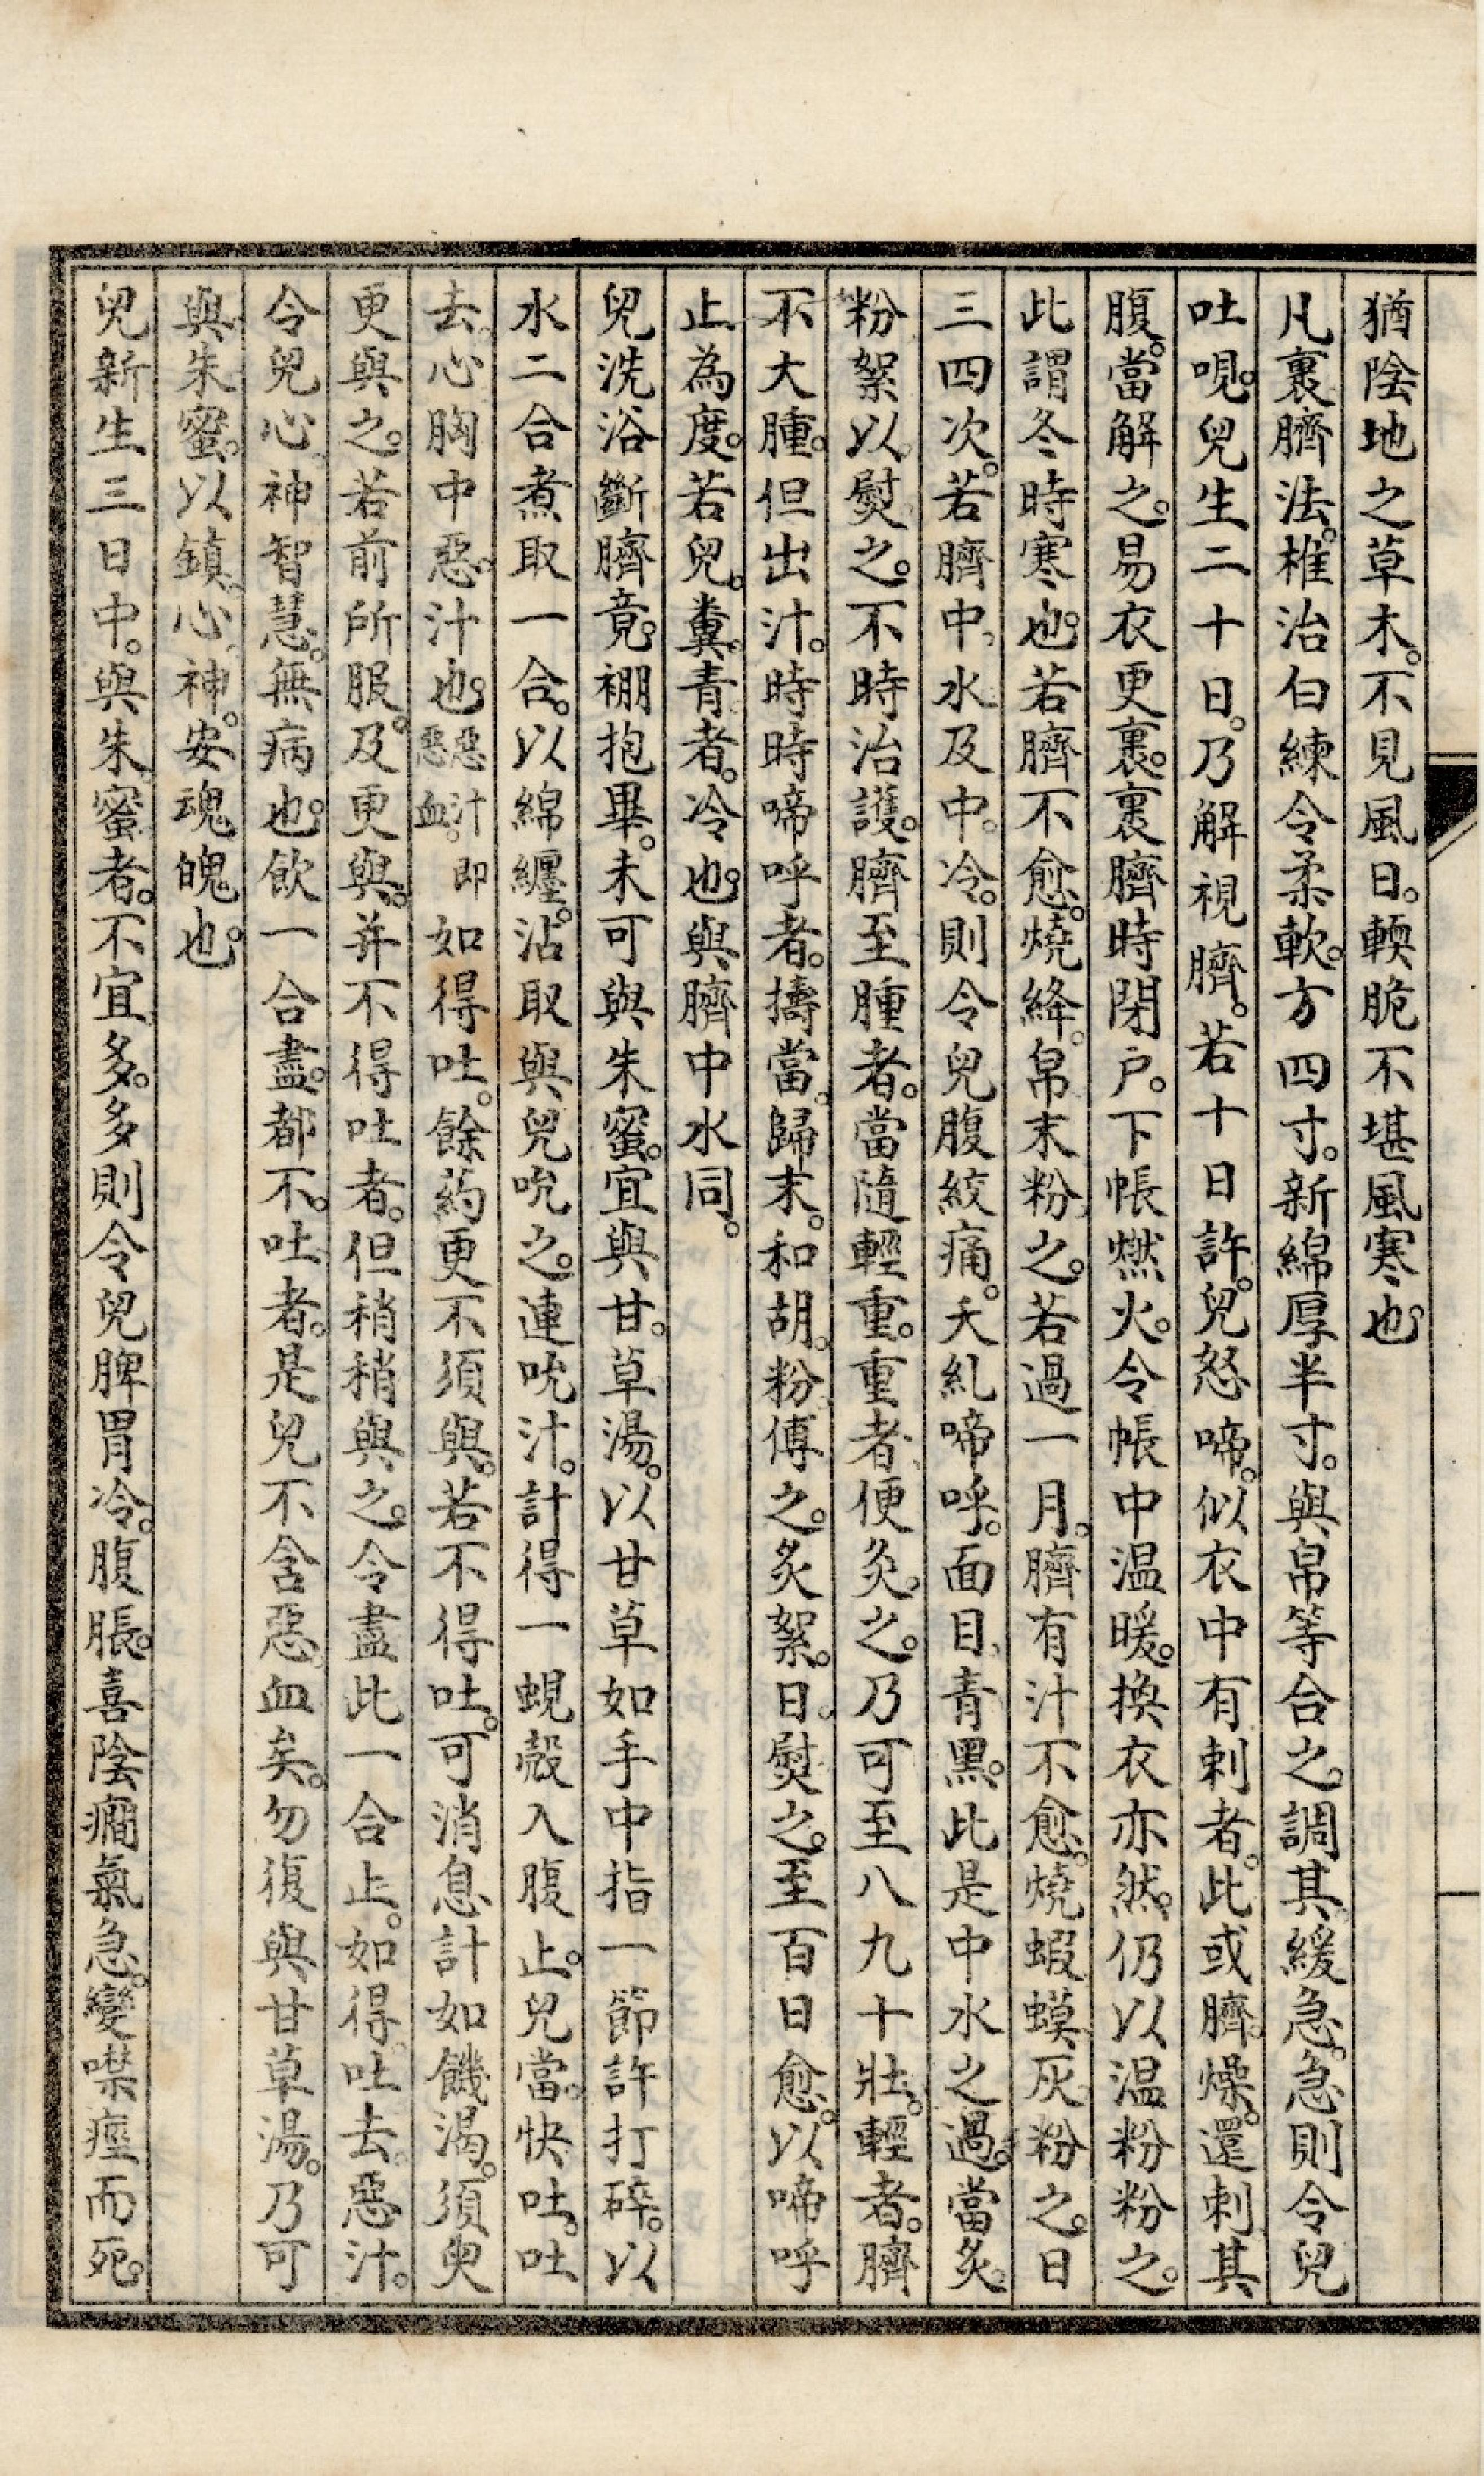 猶陰地之草木。不見風日。輭脆不堪風寒也。
凡裹臍法。椎治白練令柔軟。方四寸。新綿厚半寸。與帛等合之。調其緩急。急則令兒
吐哯。兒生二十日。乃解視臍。若十日許。兒怒啼。似衣中有刺者。此或臍燥。還刺其
腹。當解之。易衣更裹。裹臍時閉戶。下帳燃火。令帳中温暖。換衣亦然。仍以温粉粉之。
此謂冬時寒也。若臍不愈。燒絳帛末粉之。若過一月。臍有汁不愈。燒蝦蟆灰粉之。日
三四次。若臍中水及中冷。則令兒腹絞痛。夭糺啼呼。面目青黑。此是中水之過。當炙
粉絮以熨之。不時治護。臍至腫者。當隨輕重。重者便灸之。乃可至八九十壯。輕者。臍
不大腫。但出汁。時時啼呼者。擣當歸末。和胡粉傅之。炙絮。日熨之。至百日愈。以啼呼
止為度。若兒糞青者。冷也。與臍中水同。
兒洗浴斷臍竟。襁抱畢。未可與朱蜜。宜與甘草湯。以甘草如手中指一節許打碎。以
水二合煮取一合。以綿纏。沾取與兒吮之。連吮汁。計得一蜆殼入腹止。兒當快吐。吐
去心胸中惡汁也。惡汁即惡血。如得吐。餘药更不須與。若不得吐。可消息計如饑渴。須臾
更與之。若前所服。及更與。并不得吐者。但稍稍與之。令盡此一合止。如得吐去惡汁。
令兒心神智慧。無病也。飲一合盡。都不吐者。是兒不含惡血矣。勿復與甘草湯。乃可
與朱蜜。以鎮心神。安魂魄也。
兒新生三日中。與朱蜜者。不宜多。多則令兒脾胃冷。腹脹。喜陰癇氣急。變噤痙而死。